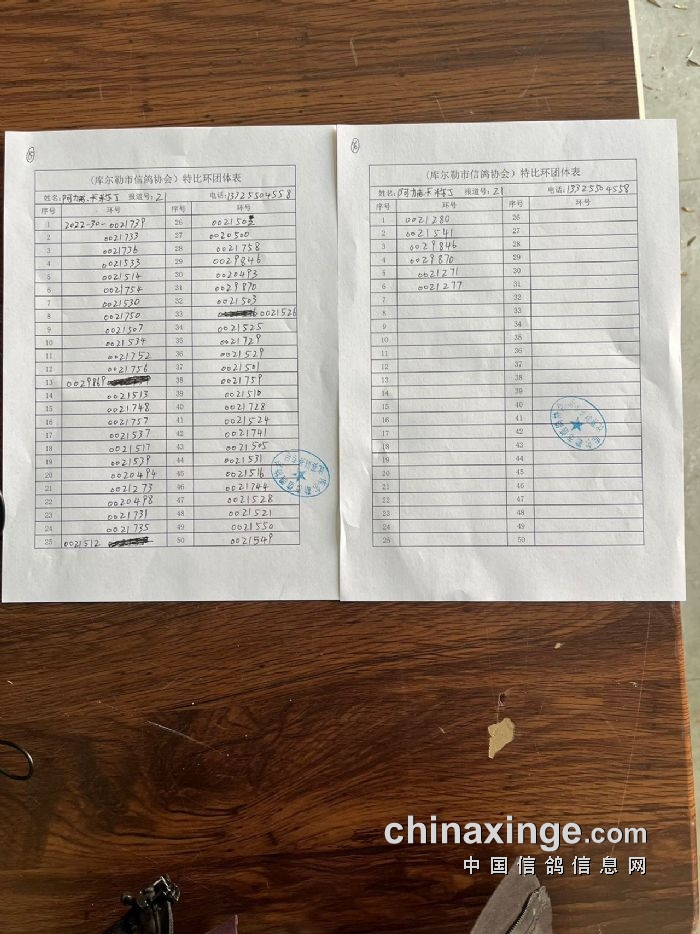 (库尔勒市信鸽协会) 特比环团体表
姓名: 报道号: 21 电话: 13325504558
序号 环号 序号 环号
1 2022-30-0021739 26
2 0021733 27 0020500
3 0021736 28 0021758
4 0021533 29 0029846
5 0021514 30 0020493
6 0021754 31 0029870
7 0021530 32 0021503
8 0021750 33 0021526
9 0021507 34 0021525
10 0021534 35 0021729
11 0021752 36 0021529
12 0021756 37 0021501
13 0029869 38 0021759
14 0021513 39 0021510
15 0021748 40 0021728
16 0021757 41 0021524
17 0021537 42 0021741
18 0021517 43 0021505
19 0021539 44 0021531
20 0020494 45 0021516
21 0021273 46 0021744
22 0020498 47 0021528
23 0021731 48 0021521
24 0021735 49 0021550
25 0021512 50 0021549
(库尔勒市信鸽协会) 特比环团体表
姓名: 报道号: 21 电话: 13325504558
序号 环号 序号 环号
1 0021280 26
2 0021541 27
3 0029846 28
4 0029870 29
5 0021271 30
6 0021277 31
7 32
8 33
9 34
10 35
11 36
12 37
13 38
14 39
15 40
16 41
17 42
18 43
19 44
20 45
21 46
22 47
23 48
24 49
25 50
chinaxinge.com
中国信鸽信息网